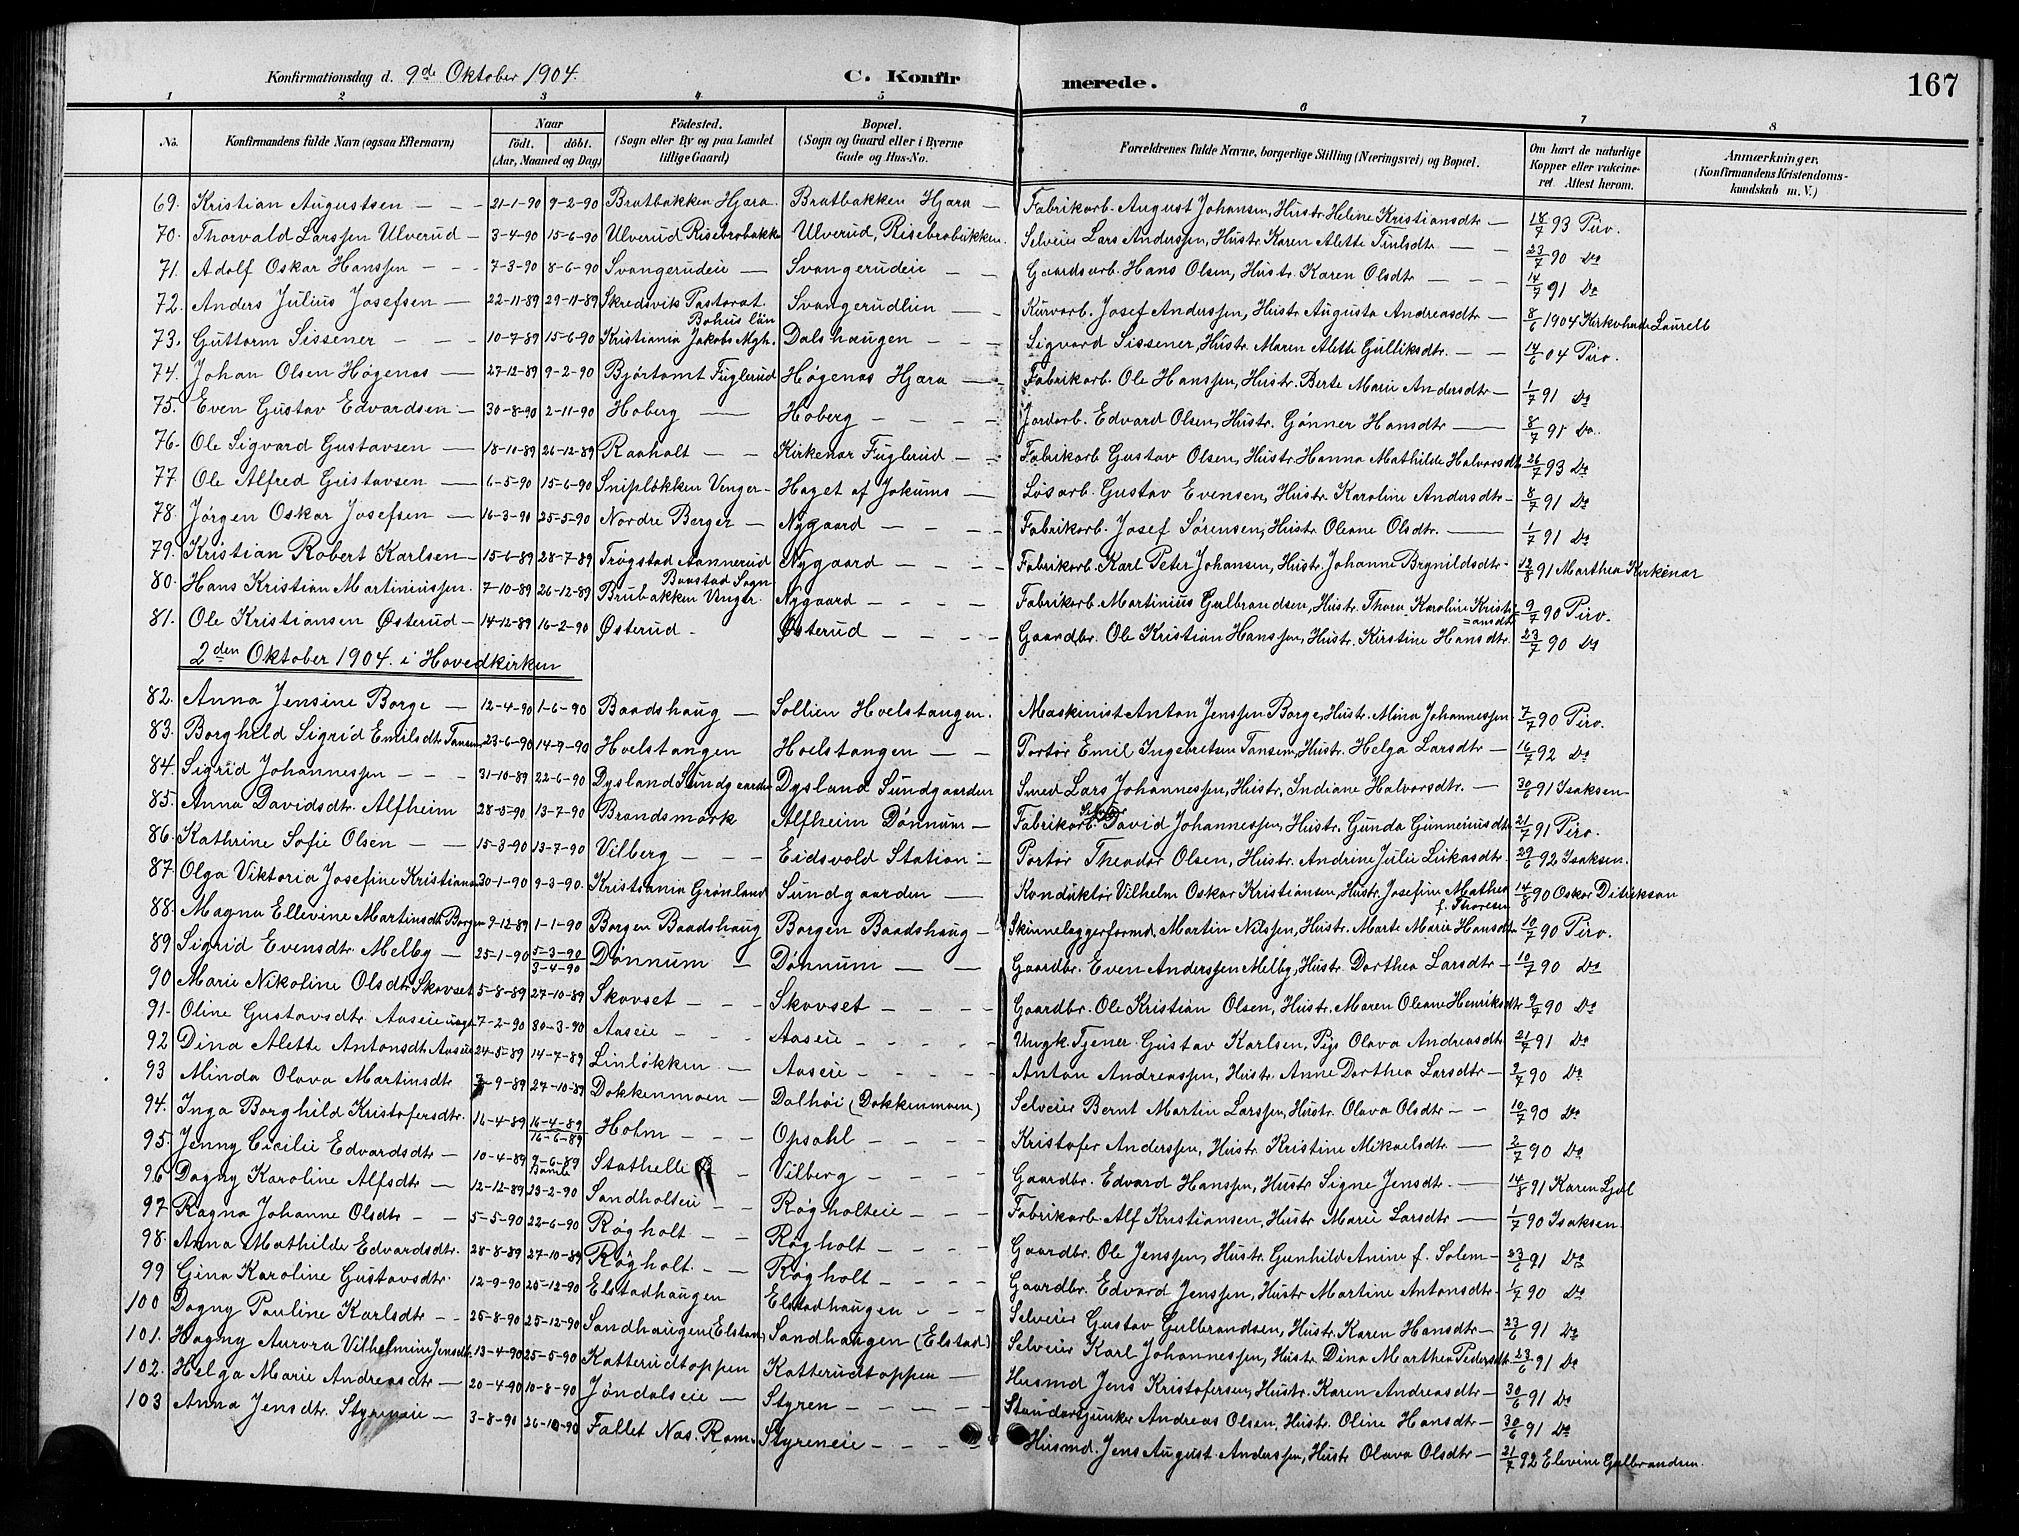 Konfirmationsdag d. 9de Oktober 1904. C. Konfir merede. 167
1 2 3 4 5 6 7 8
No. Konfirmandens fulde Navn (ogsaa Efternavn) Naar født. døbt. (Aar, Maaned og Dag) Fødested. (Sogn eller By og paa Landet tillige Gaard) Bopæl. (Sogn og Gaard eller i Byerne Gade og Hus-No. Forældrenes fulde Navne, borgerlige Stilling (Næringsvei) og Bopæl. Om havt de naturlige Kopper eller vakcineret. Attest herom. Anmærkninger, (Konfirmandens Kristendomskundskab m. V.)
69. Kristian Augustsen — 21-1-90 9-2-90 Bratbakken Hjæra. Bratbakken Hjæra — Fabrikarb. August Johansen, Hustr. Helene Kristiansdtr — 18/7 93 Piro.
70. Thorvald Larssen Ulverud — 3-4-90 15-6-90 Ulverud Risebrobakke Ulverud, Risebrobakken. Selveier Lars Anderssen, Hustr. Karen Alette — 23/7 90 Do
71. Adolf Oskar Hanssen — 7-3-90 8-6-90 Svangerudeie — Svangerudeie — Gaardsarb. Hans Olsen, Hustr. Karen Olsdtr — 14/7 91 Do
72. Anders Julius Josefsen — 22-11-89 29-11-89 Skredsvik Pastorat. Bohus län Svangerudlien — Kurvarb. Josef Anderssen, Hustr Augusta Andreasdtr — 8/6 1904 Laurell
73. Guttorm Sissener — 10-7-89 15-6-90 Kristiania Jakobs Mgh. Dalshaugen — Sigvard Sissener, Hustr. Maren Alette Gulliksdtr. — 14/6 04 Piro.
74. Johan Olsen Høgenas — 27-12-89 9-2-90 Bjøntomt Fuglerud Høgenas Hjæra — Fabrikarb. Ole Hanssen, Hustr. Berte Marie Andersdtr — 1/7 91 Do
75. Even Gustav Edvardsen — 30-8-90 2-11-90 Hoberg — Hoberg — Jordarb. Edvard Olsen, Hustr. Gønner Hansdtr — 8/7 91 Do.
76. Ole Sigvard Gustavsen — 18-10-89 26-12-89 Raaholt — Kirkenær Fuglerud — Fabrikarb Gustav Olsen, Hustr. Hanna Mathilde Halvorsdtr 26/7 93 Do
77. Ole Alfred Gustavsen — 6-5-90 15-6-90 Sniplökken Venger — Haget af Jokums — Løsarb. Gustav Evensen, Hustr. Karoline Andersdtr — 8/7 91 Do
78. Jørgen Oskar Josefsen — 16-3-90 25-5-90 Nordre Berger — Nygaard — Fabrikarb. Josef Sørensen, Hustr Oleane Olsdtr. — 1/7 91 Do
79. Kristian Robert Karlsen — 15-6-89 28-7-89 Trøgstad Aannerud Baastad Sogn Nygaard — Fabrikarb. Karl Peter Johansen, Hustr. Johanne Brynildsdtr — 12/8 91 Marthea Kirkenær
80. Hans Kristian Martiniussen. 7-10-89 26-12-89 Brubakken Venger. Nygaard — Fabrikarb. Martinius Gulbrandsen, Hustr. Thora Karoline Kristiansdtr 9/7 90 Piro.
81. Ole Kristiansen Østerud — 14-12-89 16-2-90 Østerud — Østerud — Gaardbr. Ole Kristian Hanssen, Hustr. Kirstine Hansdtr. 23/7 90 Do
2den Oktober 1904. i Hovedkirken
82. Anna Jensine Borge — 12-4-90 1-6-90 Baadshaug — Sollien Hoelstangen. Maskinist Anton Jenssen Borge, Hustr. Mina Johannessen 7/7 90 Piro.
83. Borghild Sigrid Emilsdtr Tansem 23-6-90 14-9-90 Hoelstangen Hoelstangen — Portør Emil Ingebretsen Tansem, Hustr. Helga Larsdtr — 16/7 92 Do
84. Sigrid Johannessen — 31-10-89 22-6-90 Dysland Sundgaarden Dysland Sundgaarden Smed Lars Johannessen, Hustr, Indiane Halvorsdtr. — 30/6 91 Isaksen
85. Anna Davidsdtr. Alfheim 28-5-90 13-7-90 Brandsmørk Alfheim Dønnum — Fabrikarb. David Johannessen, Hustr. Gunda Gunneriusdtr 21/7 91 Piro.
86. Kathrine Sofie Olsen — 15-3-90 13-7-90 Vilberg — Eidsvold Station — Portør Theodor Olsen, Hustr. Andrine Julie Lukasdtr. 29/6 92 Isaksen.
87. Olga Viktoria Josefine Kristiansen 30-1-90 9-3-90. Kristiania Grønland Sundgaarden — Konduktør Vilhelm Oskar Kristiansen, Hustr. Josefine Mathea f. Thoresen 14/8 90 Oskar Ditriksen
88. Magna Ellevine Martinsdtr Borgen 9-12-89 1-1-90 Borgen Baadshaug Borgen Baadshaug — Skinnelæggerformd. Martin Nilssen, Hustr. Marte Marie Hansdtr 10/7 90 Piro.
89 Sigrid Evensdtr. Melby — 25-1-90 5-3-90 3-4-90 Dønnum — Dønnum — Gaardbr. Even Anderssen Melby, Hustr. Dorthea Larsdtr — 10/7 90 Do
90 Marie Nikoline Olsdtr Skovset 5-8-89 27-10-89 Skovset — Skovset — Gaardbr. Ole Kristian Olsen, Hustr. Maren Oleane Henriksdtr 9/7 90 Do
91. Oline Gustavsdtr. Aaseie uægt 7-2-90 30-3-90 Aaseie — Aaseie — Ungk. Tjener Gustav Karlsen, Pige Olava Andreasdtr 21/7 91 Do
92 Dina Alette Antonsdtr Aaseie 24-5-89 14-7-89 Linløkken — Aaseie — Anton Andreassen, Hustr. Anne Dorthea Larsdtr — 2/7 90 Do
93 Minda Olava Martinsdtr 7-9-89 27-10-89 Dokkenmoen — Dalhøi (Dokkenmoen) Selveier Bernt Martin Larssen, Hustr. Olava Olsdtr — 10/7 90 Do
94. Inga Borghild Kristofersdtr. 16-4-89 16-4-89 16-6-89 Holm — Opsahl — Kristofer Anderssen, Hustr. Kristine Mikaelsdtr. — 2/7 90 Do
95. Jenny Cecilie Edvardsdtr — 10-4-89 9-6-89 Bamle Stathelle — Vilberg — Gaardbr. Edvard Hanssen, Hustr Signe Jensdtr. — 14/8 91 Karen
96 Dagny Karoline Alfsdtr — 12-12-89 23-2-90 Sandholteie — Røgholteie — Fabrikarb. Alf Kristiansen, Hustr Marie Larsdtr — 1/7 90 Isaksen.
97. Ragna Johanne Olsdtr — 5-5-90 22-6-90 Røgholt — Røgholt — Gaardbr. Ole Jenssen, Hustr. Gunhild Anine f. Solem — 23/6 91 Do
98. Anna Mathilde Edvardsdtr. 28-8-89 27-10-89 Røgholt. — Røgholt — Gaardbr. Edvard Jenssen, Hustr Martine Antonsdtr — 1/7 90 Do
99 Gina Karoline Gustavsdtr. 12-9-90 25-12-90 Elstadhaugen Elstadhaugen — Selveier Gustav Gulbrandsen, Hustr. Karen Hansdtr — 23/6 91 Do
100 Dagny Pauline Karlsdtr — 26-8-90 25-12-90 Sandhaugen (Elstad) Sandhaugen (Elstad) Selveier Karl Johannessen, Hustr. Dina Marthea Pedersdtr. 23/6 91 Do
101. Hagny Aurora Vilhelmine Jensdtr. 13-4-90 25-5-90 Katterudtoppen Katterudtoppen — Husmd Jens Kristofersen, Hustr. Karen Andreasdtr — 30/6 91 Do
102. Helga Marie Andreasdtr — 20-4-90 10-8-90 Jøndalseie — Styren — Standartjunker Andreas Olsen, Hustr. Oline Hansdtr — 30/6 91 Do
103 Anna Jensdtr. Styreneie — 3-8-90 26-10-90 Fallet Nas. Rom. Styreneie — Husmd. Jens August Anderssen, Hustr Olava Olsdtr — 21/7 92 Elevine Gulbrandsen.